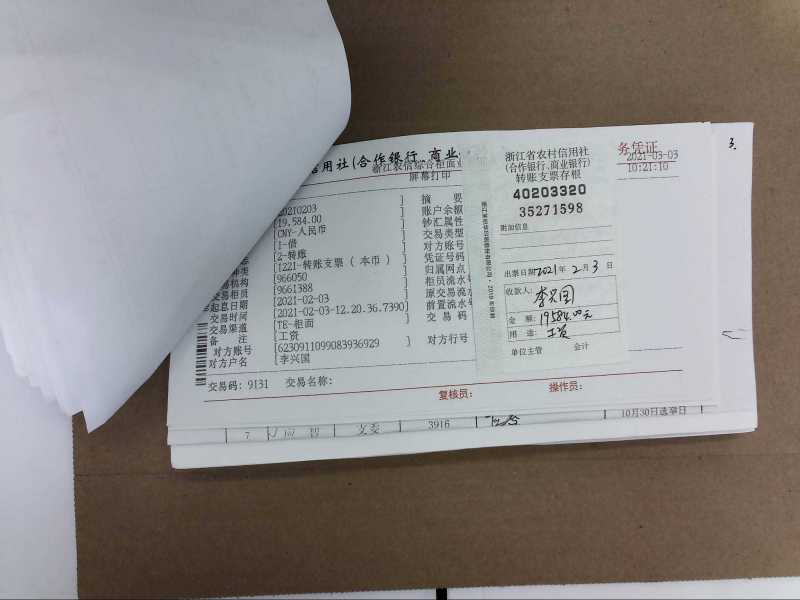 信用社(合作银行、商业
务凭证
浙江农信综合柜面业
屏幕打印
2021-03-03
10:21:10
20210203
19,584.00
CNY-人民币
1-借
2-转账
122I-转账支票(本币)
966050
9661388
2021-02-03
2021-02-03-12.20.36.7390
TE-柜面
工资
6230911099083936929
李兴国
交易机构
交易柜员
起息日期
交易时间
交易渠道
备 注
对方账号
对方户名
摘 要
账户余额
钞汇属性
交易类型
对方账号
凭证号码
归属网点
柜员流水号
原交易流水
前置流水号
交 易 码
对方行号
交易码: 9131 交易名称:
复核员: 操作员:
浙江省农村信用社
(合作银行、商业银行)
转账支票存根
40203320
35271598
附加信息
出票日期2021年2月3日
收款人:
李兴国
金 额: 19584.00元
用 途: 工资
单位主管 会计
3.
7 支委 3916
10月30日选举日